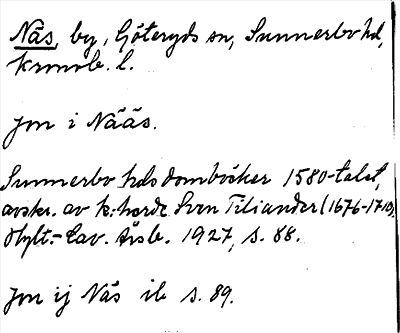 Näs, by, Göteryds sn, Sunnerbo hd,
Kronob. l.
Jon i Nääs.
Sunnerbo hds domböcker 1580-talet,
avskr. av k:harde Sven Tiliander (1676-1710).
Hylt.-Cav. Årsb. 1927, s. 88.
Jon ij Näs ib s. 89.